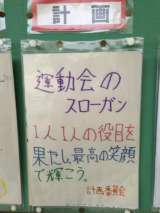 計画
運動会の
スローガン
1人1人の役目を
果たし最高の笑顔
で輝こう。
計画委員会